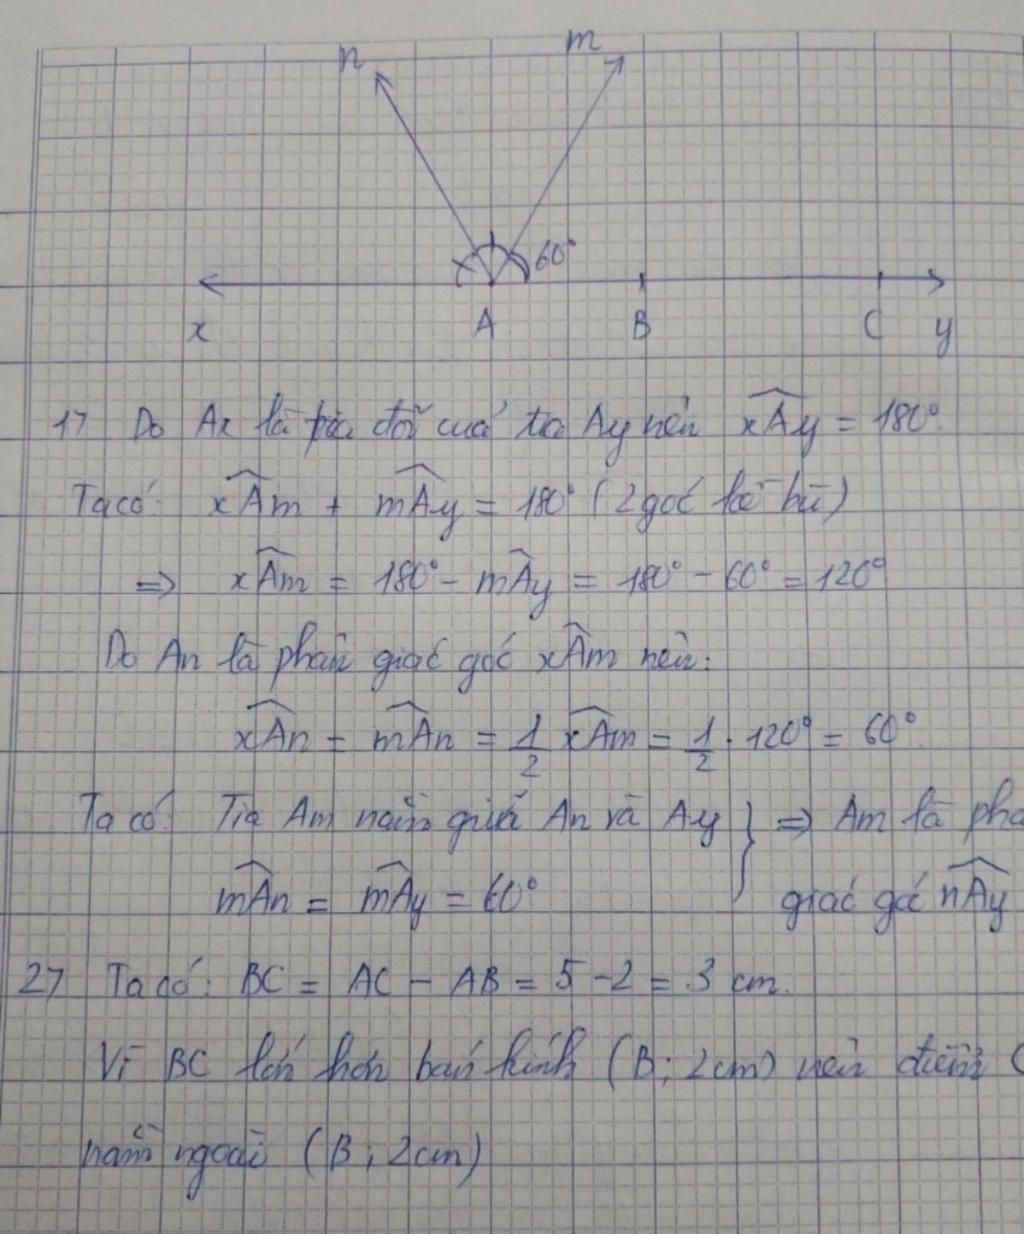 n m
60°
x A B C y
1) Do Ax là tia đối của tia Ay nên xÂy = 180°.
Ta có: xÂm + mÂy = 180° (2 góc kề bù)
⇒ xÂm = 180° - mÂy = 180° - 60° = 120°
Do An là phân giác góc xÂm nên:
xÂn = mÂn = 1/2 xÂm = 1/2 . 120° = 60°.
Ta có: Tia Am nằm giữa An và Ay } ⇒ Am là phâ
mÂn = mÂy = 60° giác góc nÂy
2) Ta có: BC = AC - AB = 5 - 2 = 3 cm.
Vì BC lớn hơn bán kính (B; 2cm) nên điểm C
nằm ngoài (B; 2cm)